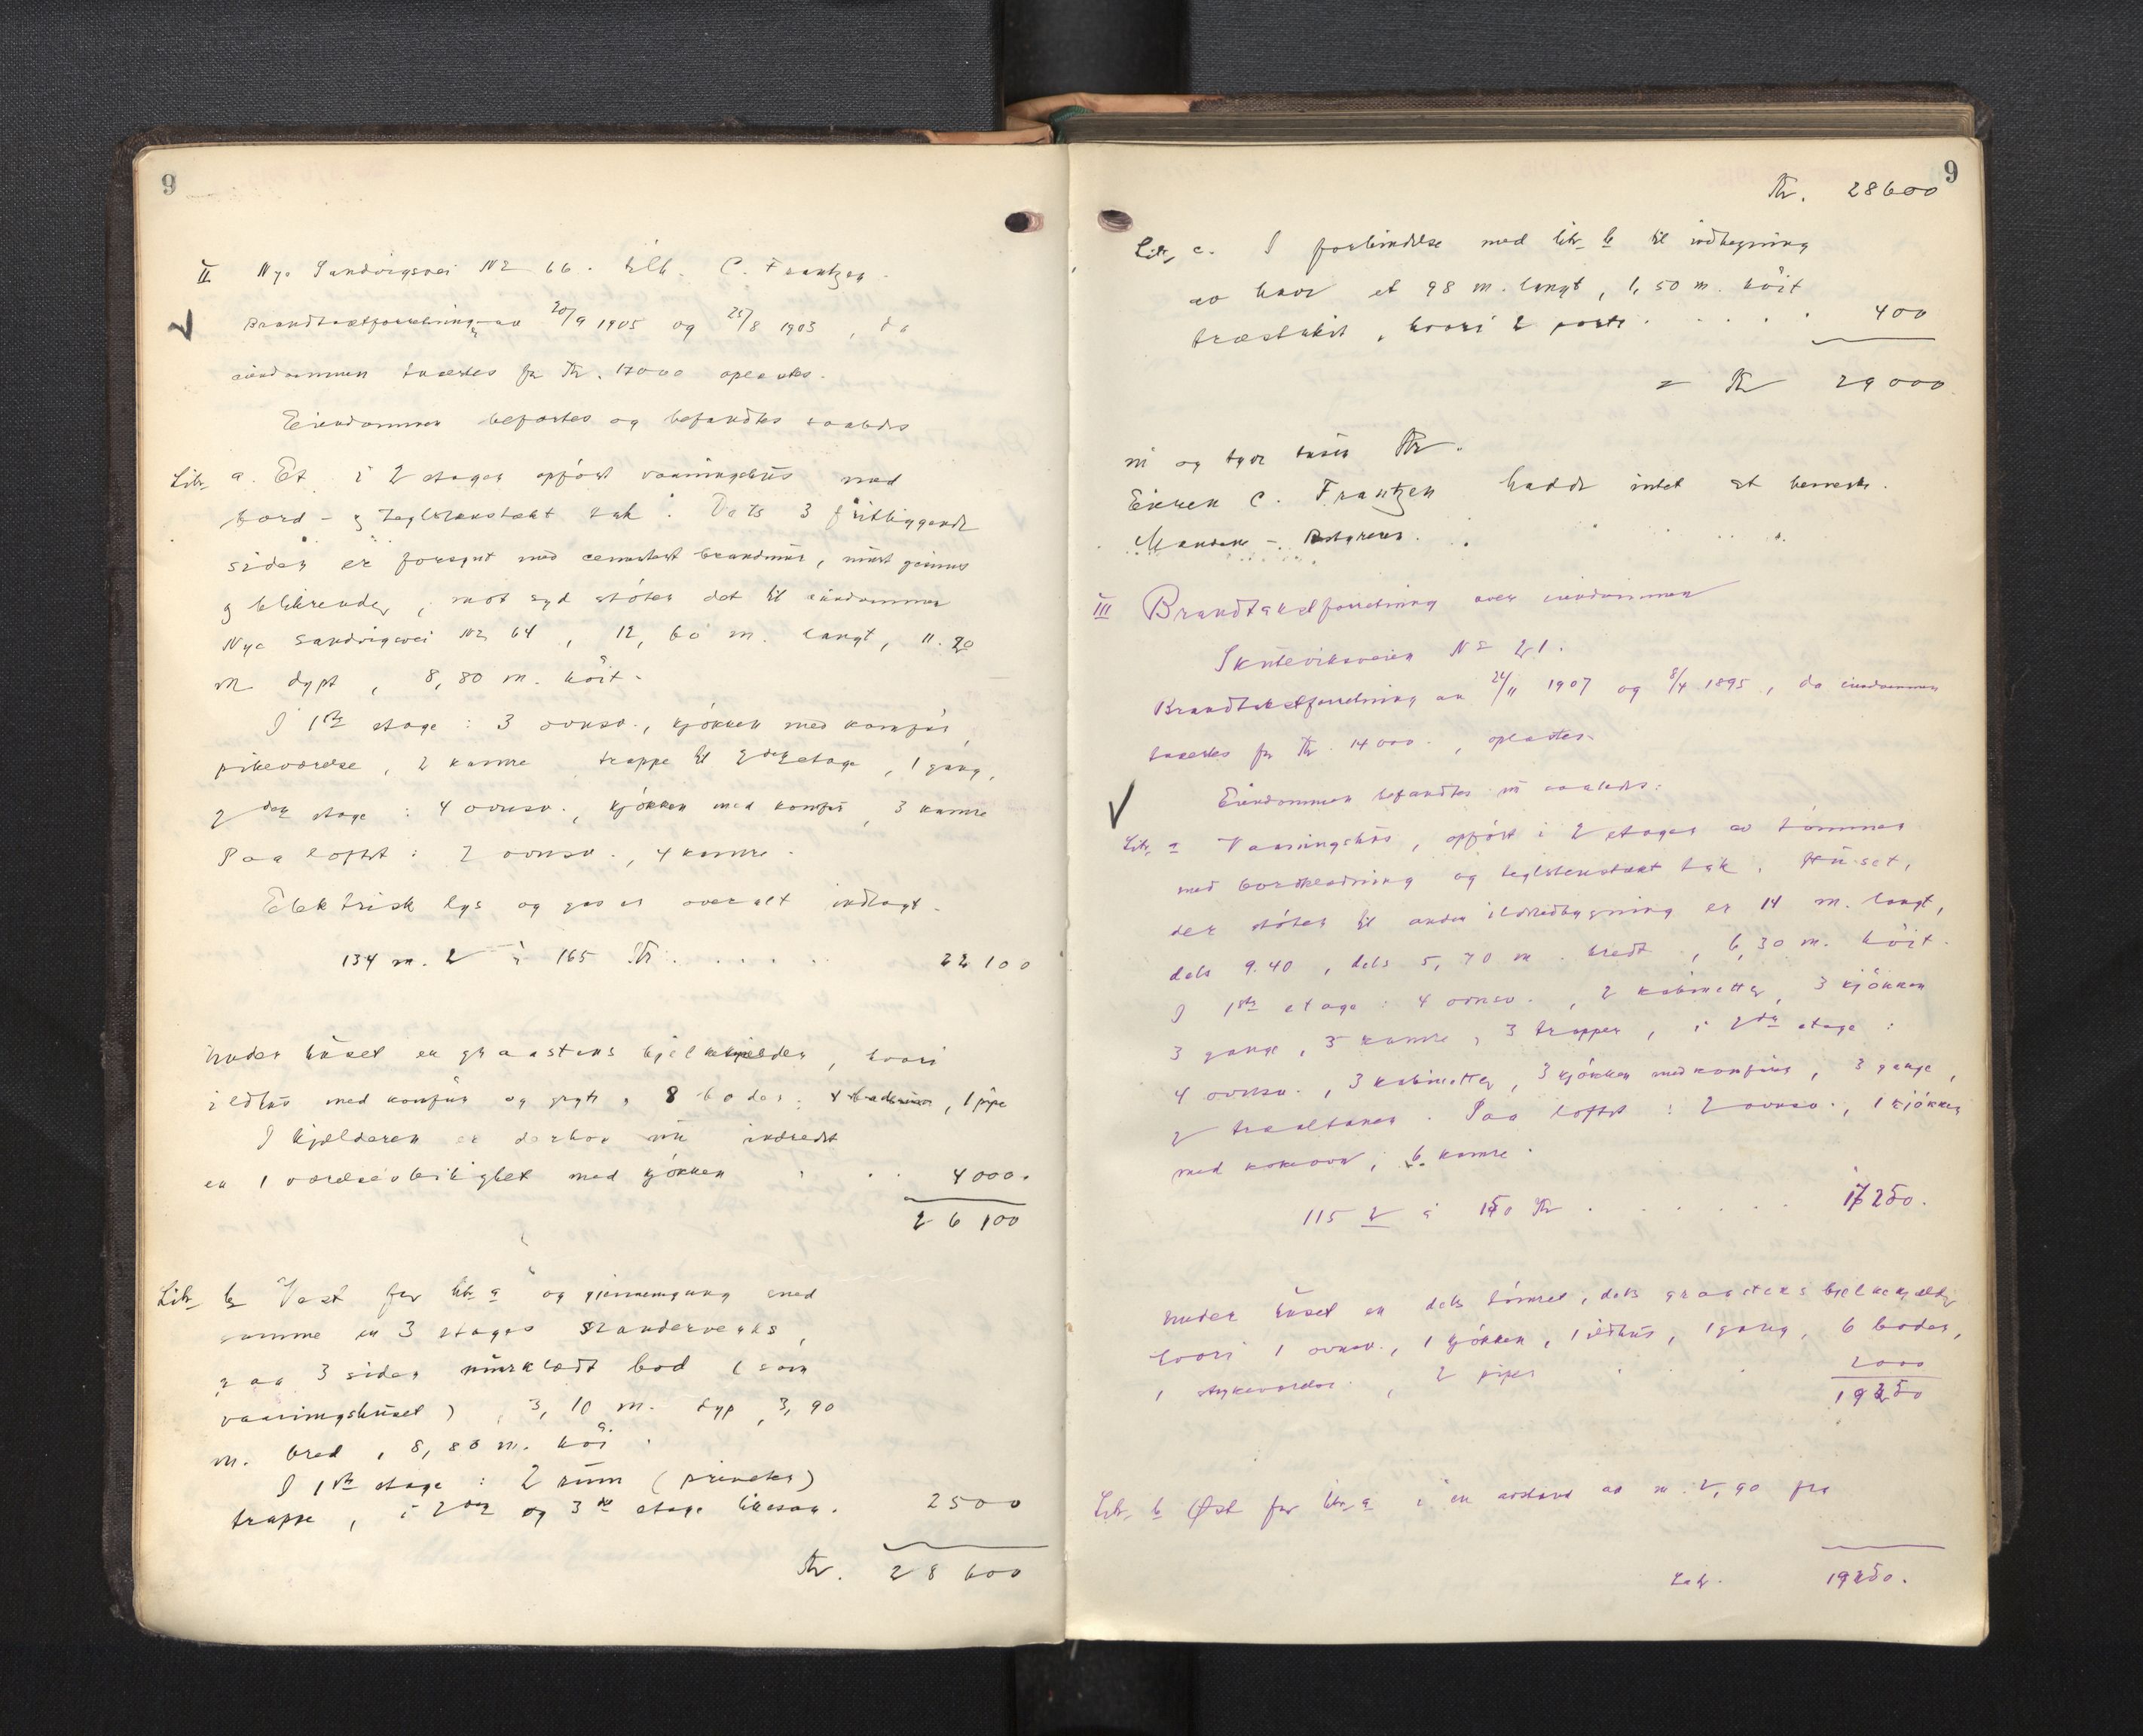 9
II Nye Sandvigsvei No 66. tilh. C. Frantzen.
Brandtaxtforretning av 20/9 1905 og 25/8 1903, da
eiendommen taxertes for Kr. 17000 oplæstes.
Eiendommen befartes og befandtes saaledes
Litr. a. Et i 2 etager opført vaaningshus med
bord- og teglstenstækt tak. Dets 3 fritliggende
sider er forsynt med cementert brandmur, murt gesims
og blikrender, mot syd støter det til eiendommen
Nye Sandvigsvei No 64, 12,60 m. langt, 11.20
m dypt, 8,80 m. høit.
I 1ste etage: 3 ovnsv., kjøkken med komfur,
pikeværelse, 2 kamre trappe til 2den etage, 1 gang,
2den etage: 4 ovnsv., kjøkken med komfur, 3 kamre
Paa loftet: 2 ovnsv., 4 kamre.
Elektrisk lys og gas er overalt indlagt.
134 m. 2 à 165 Kr. . . . . . 22100
Under huset en graastens bjelkekjelder, hvori
ildhus med komfur og gryte, 8 boder, 1 pipe
I kjælderen er derhos nu indredt
en 1 værelses leilighet med kjøkken . . . 4000.
26100
Litr. b Vest for litr. a og gjennemgang med
samme en 3 etages standerverks,
paa 3 sider murklædt bod (som
vaaningshuset), 3,10 m. dyp, 3,90
m. bred, 8,80 m. høi.
I 1ste etage: 2 rum (priveter)
trappe, i 2den og 3de etage likesaa. 2500
Kr. 28600
9
Kr. 28600
Litr. c. I forbindelse med litr. b til indhegning
av have et 98 m. langt, 1,50 m. høit
træstakit, hvori 2 porte. . . . . 400
= Kr 29000
ni og tyve tusen Kr.
Eieren C. Frantzen hadde intet at bemerke.
III Brandtakstforretning over eiendommen
Skuteviksveien No 21.
Brandtakstforretning av 24/11 1907 og 8/4 1895, da eiendommen
taxertes for Kr. 14000., oplæstes.
Eiendommen befandtes nu saaledes:
Litr. a Vaaningshus, opført i 2 etager av tømmer
med bordklædning og teglstenstækt tak. Huset,
der støter til anden ildstedbygning er 14 m. langt,
dels 9.40, dels 5,70 m. bredt, 6,30 m. høit.
I 1ste etage: 4 ovnsv., 2 kabinetter, 3 kjøkken
3 gange, 3 kamre, 3 trapper, i 2den etage:
4 ovnsv., 3 kabinetter, 3 kjøkken med komfur, 3 gange,
2 traaltaner. Paa loftet: 2 ovnsv., 1 kjøkken
med kokeovn, 6 kamre.
115 2 à 150 Kr . . . . . . 17250.
Under huset en dels tømret, dels graastens bjelkekjælder
hvori 1 ovnsv., 1 kjøkken, 1 ildhus, 1 gang, 6 boder,
1 strykeværelse, 2 piper . . . 2000
19250
Litr. b Øst for litr. a i en avstand av m. 2,90 fra
Lat. 19250.